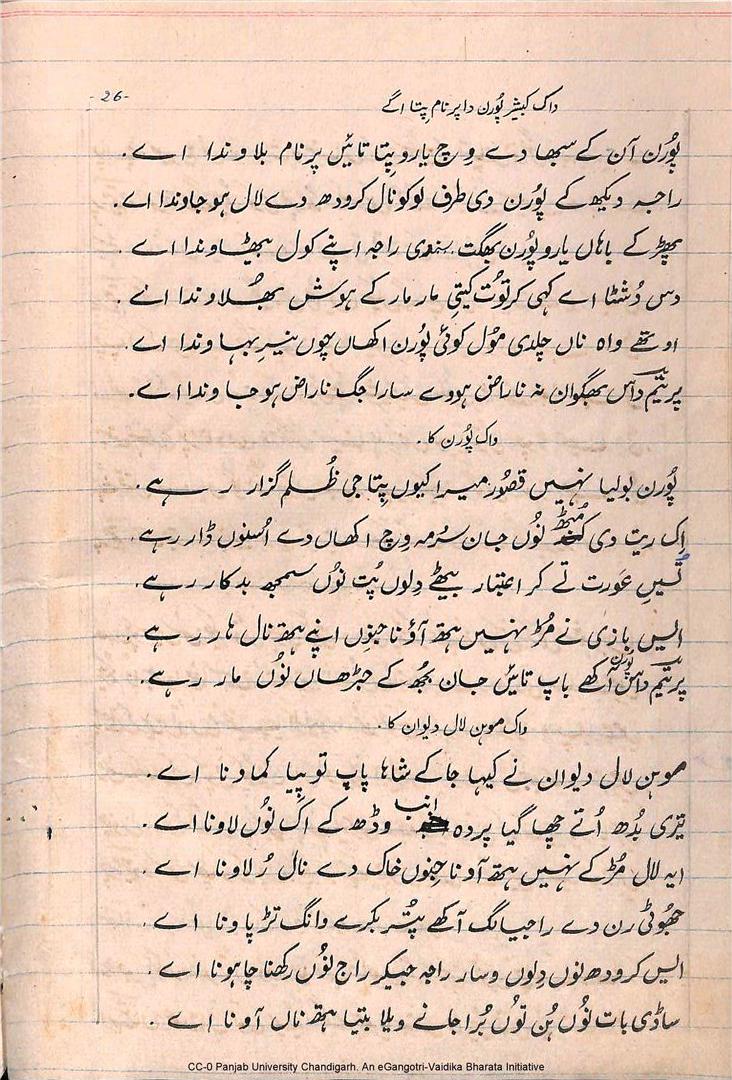 -26-
واک کبیشر پُورن دا پرنام پِتا اگے
پُورن آن کے سبھا دے وِچ یارو پِتا تائیں پرنام بلاوندا اے۔
راجہ دیکھ کے پُورن دی طرف لوکو نال کرودھ دے لال ہو جاوندا اے۔
پھڑ کے باہاں یارو پُورن بھگت سندی راجہ اپنے کول بٹھاوندا اے۔
دس دُشٹا اے کہی کرتُوت کیتی مار مار کے ہوش بھُلاوندا اے۔
اوتھے واہ ناں چلدی مُول کوئی پُورن اکھاں چوں نیر بہاوندا اے۔
پریتم داس بھگوان نہ ناراض ہووے سارا جگ ناراض ہو جاوندا اے۔
واک پُورن کا۔
پُورن بولیا نہیں قصُور میرا کیوں پِتا جی ظُلم گزار رہے۔
اِک ریت دی مُٹھ نُوں جان سُرمہ وِچ اکھاں دے اُسنوں ڈار رہے۔
تُسیں عَورت تے کر اعتبار بیٹھے دِلوں پُت نوُں سمجھ بدکار رہے۔
ایس بازی نے مُڑ نہیں ہتھ آؤنا جنہوں اپنے ہتھ نال ہار رہے۔
پریتم داس پُورن آکھے باپ تائیں جان بُجھ کے جڑھاں نُوں مار رہے۔
واک موہن لال دیوان کا۔
موہن لال دیوان نے کیہا جا کے شاہا پاپ تو پیا کماونا اے۔
تیری بُدھ اُتے چھا گیا پردہ انب وڈھ کے اک نُوں لاونا اے۔
ایہ لال مُڑ کے نہیں ہتھ آونا جنہوں خاک دے نال رُلاونا اے۔
جھُوٹی رن دے راجیا لگ آکھے پُتر بکرے وانگ تڑپاونا اے۔
ایس کرودھ نوں دِلوں وسار راجہ جیکر راج نُوں رکھنا چاہونا اے۔
ساڈی بات نُوں ہُن تُوں بُرا جانے ویلا بیتیا ہتھ ناں آونا اے۔
CC-0 Panjab University Chandigarh. An eGangotri-Vaidika Bharata Initiative